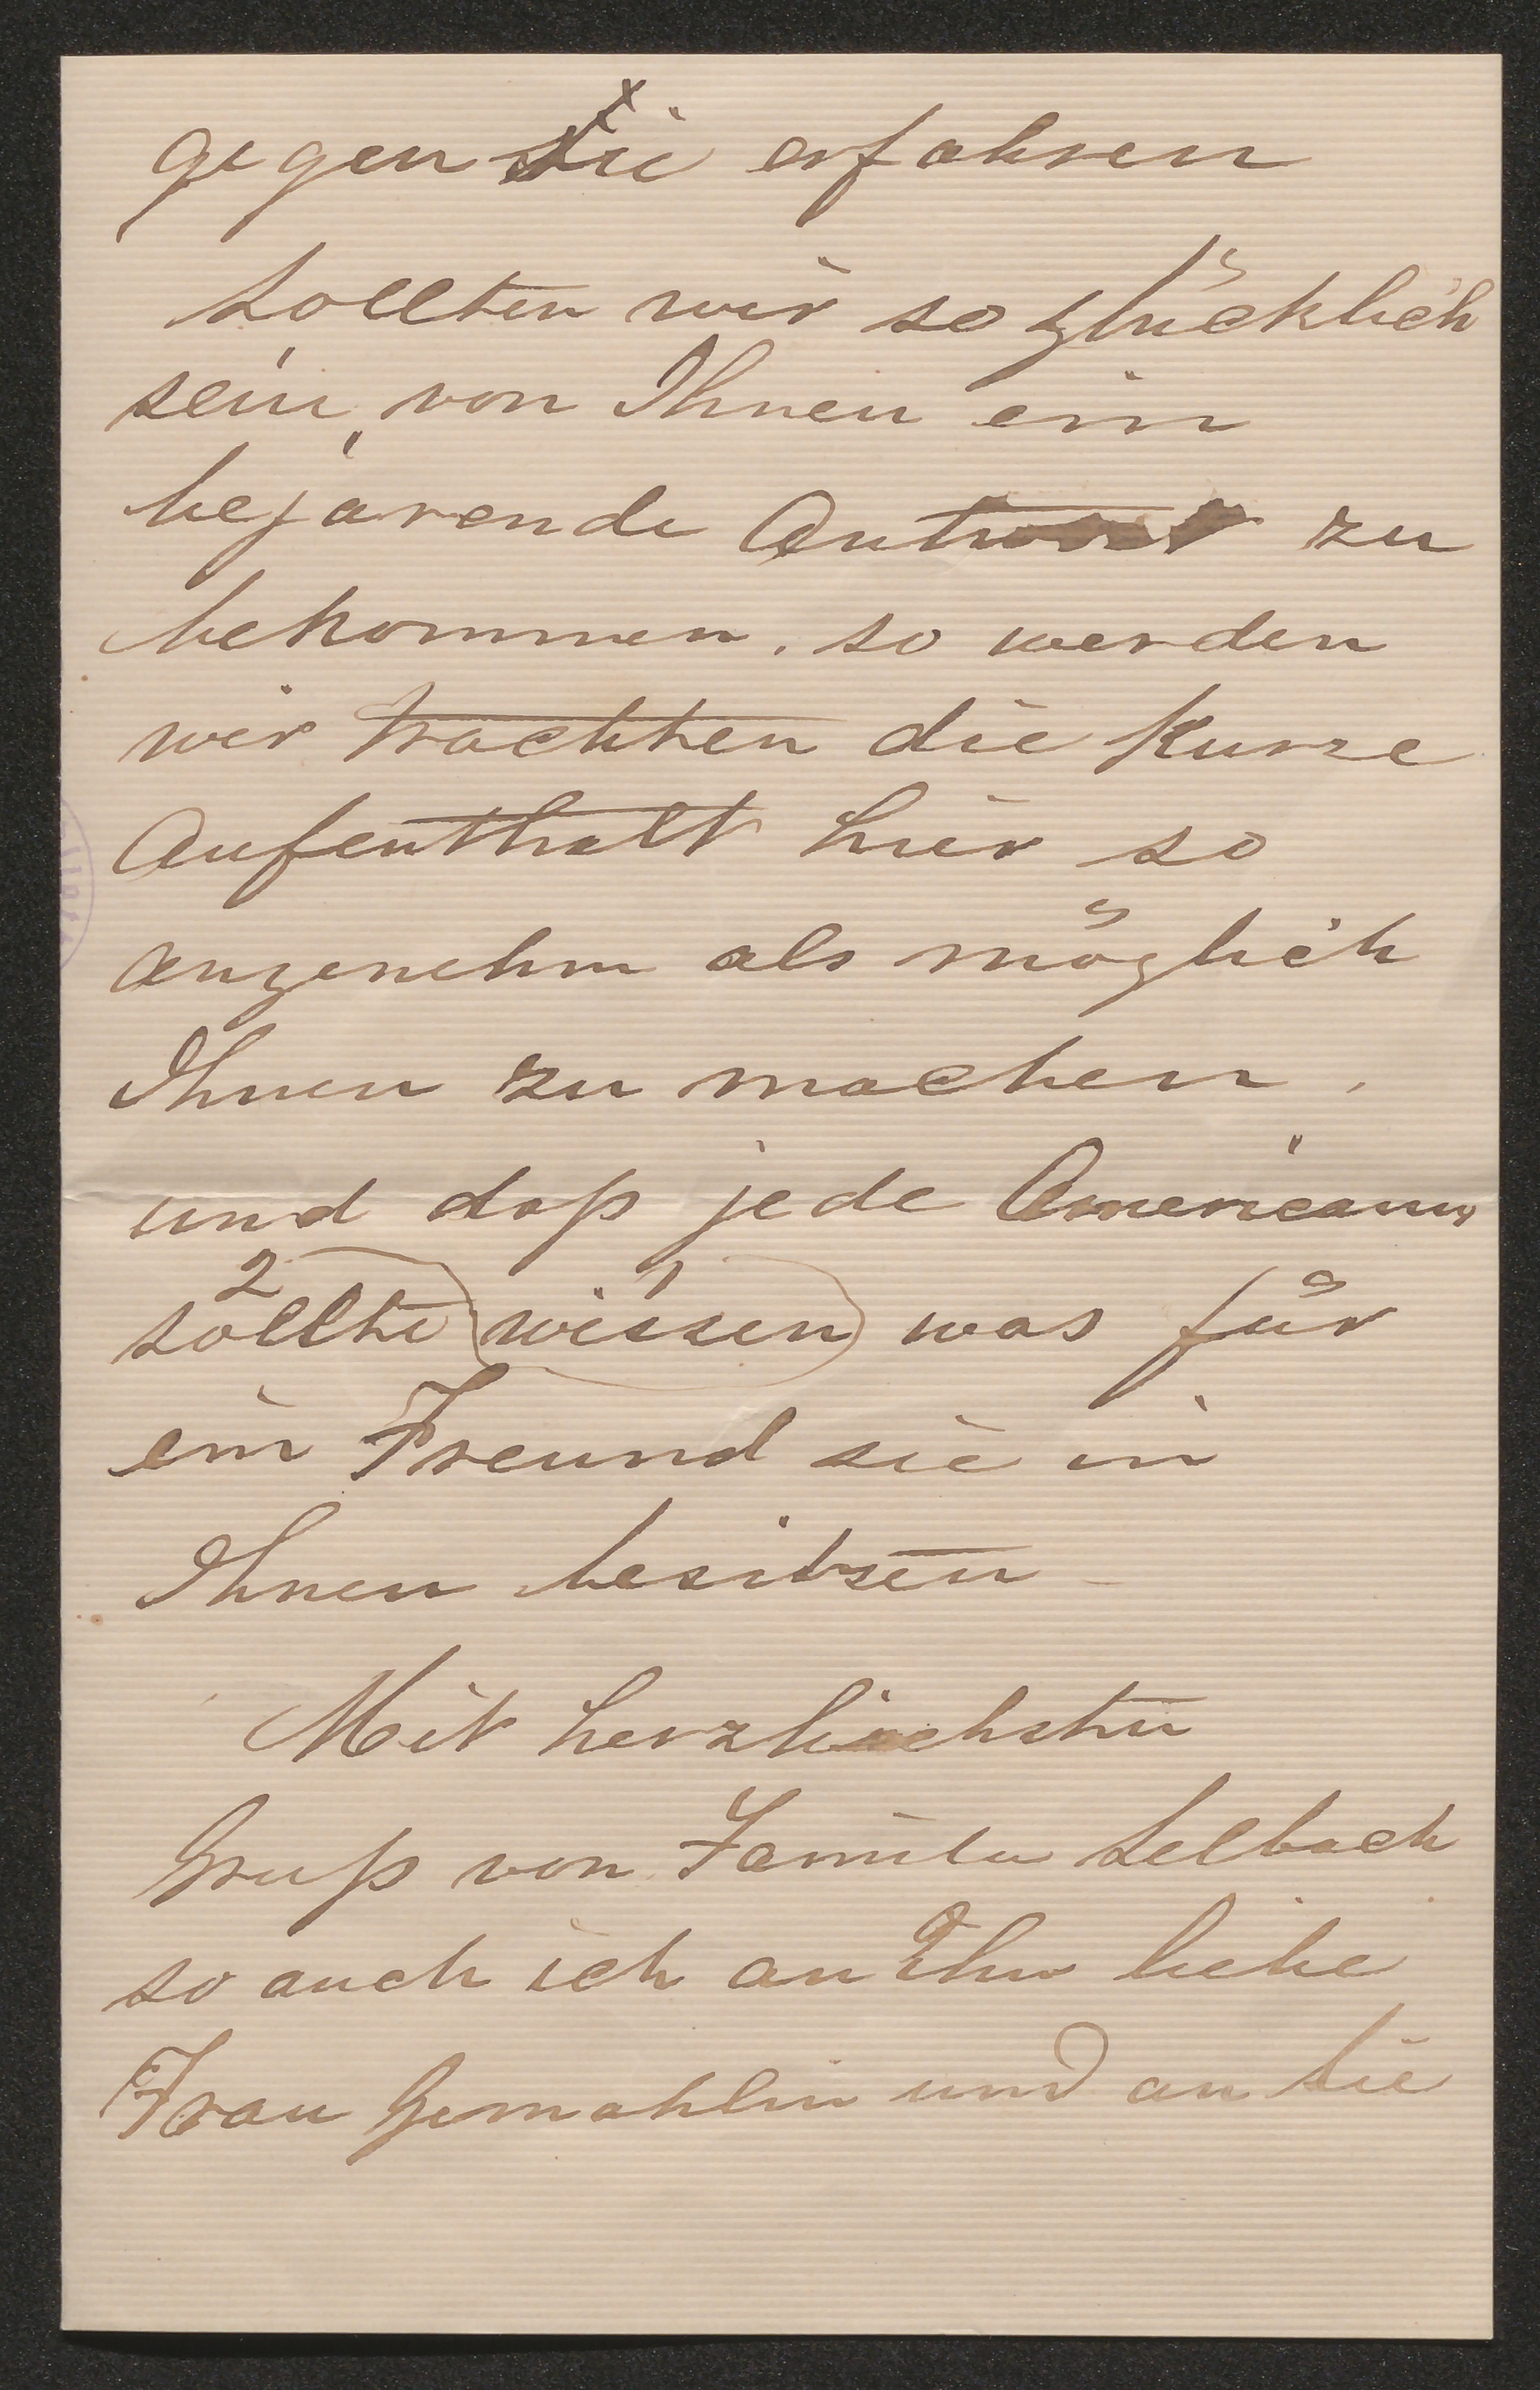 gegen Sie erfahren
sollten wir so glücklich
sein, von Ihnen ein
bejarende Antwort zu
bekommen. so werden
wir trachten die Kurze
Aufenthalt hier so
angenehm als möglich
Ihnen zu machen.
und daß jede Americaner
2 1
sollte wissen was für
ein Freund sie in
Ihnen besitzen -
Mit herzlichsten
Gruß von Familie Selbach
so auch ich an Ihre liebe
Frau Gemahlin und an Sie